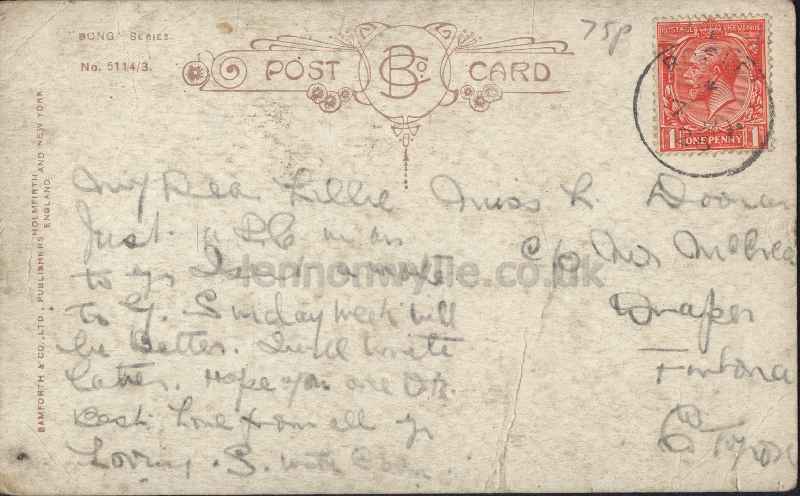 "BONG" SERIES.
No. 5114/3.
POST CARD
B Co
75p
POSTAGE REVENUE
1 ONE PENNY 1
BAMFORTH & CO., LTD., PUBLISHERS HOLMFIRTH
ENGLAND AND NEW YORK
My Dear Lillie
Just a P.C in
to
to Sunday week will
be Better. I will write
later. Hope you are O.K.
Best Love from all yr
Loving S. with
Miss L.
c/o Mrs
Draper
Fintona
Co Tyrone
lennonwylie.co.uk